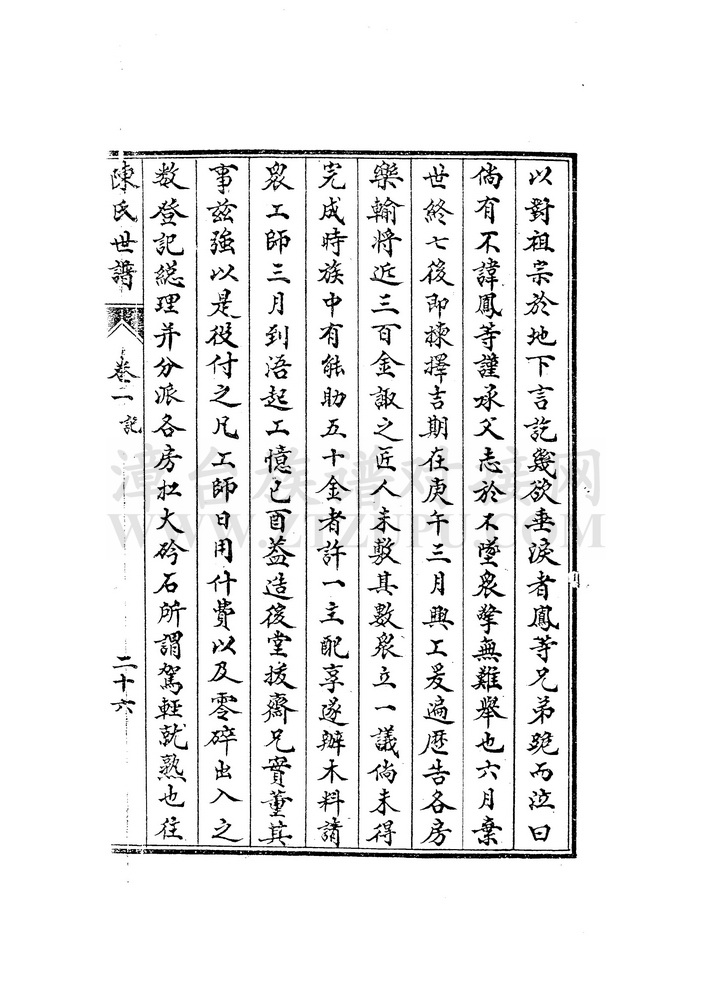 以對祖宗於地下言訖幾欲垂淚者鳳等兄弟跪而泣曰
倘有不諱鳳等謹承父志於不墜眾擎無難舉也六月棄
世終七後即揀擇吉期在庚午三月興工爰遍歷告各房
樂輸將近三百金諏之匠人未敷其數眾立一議倘未得
完成時族中有能助五十金者許一主配享遂辦木料請
眾工師三月到浯起工憶己酉葢造後堂拔齋兄實董其
事茲強以是役付之凡工師日用什費以及零碎出入之
数登記総理并分派各房扛大砛石所謂駕輕就熟也往
陳氏世譜 卷二 記 二十六
漳台族谱对接网
WWW.ZTZUPU.COM